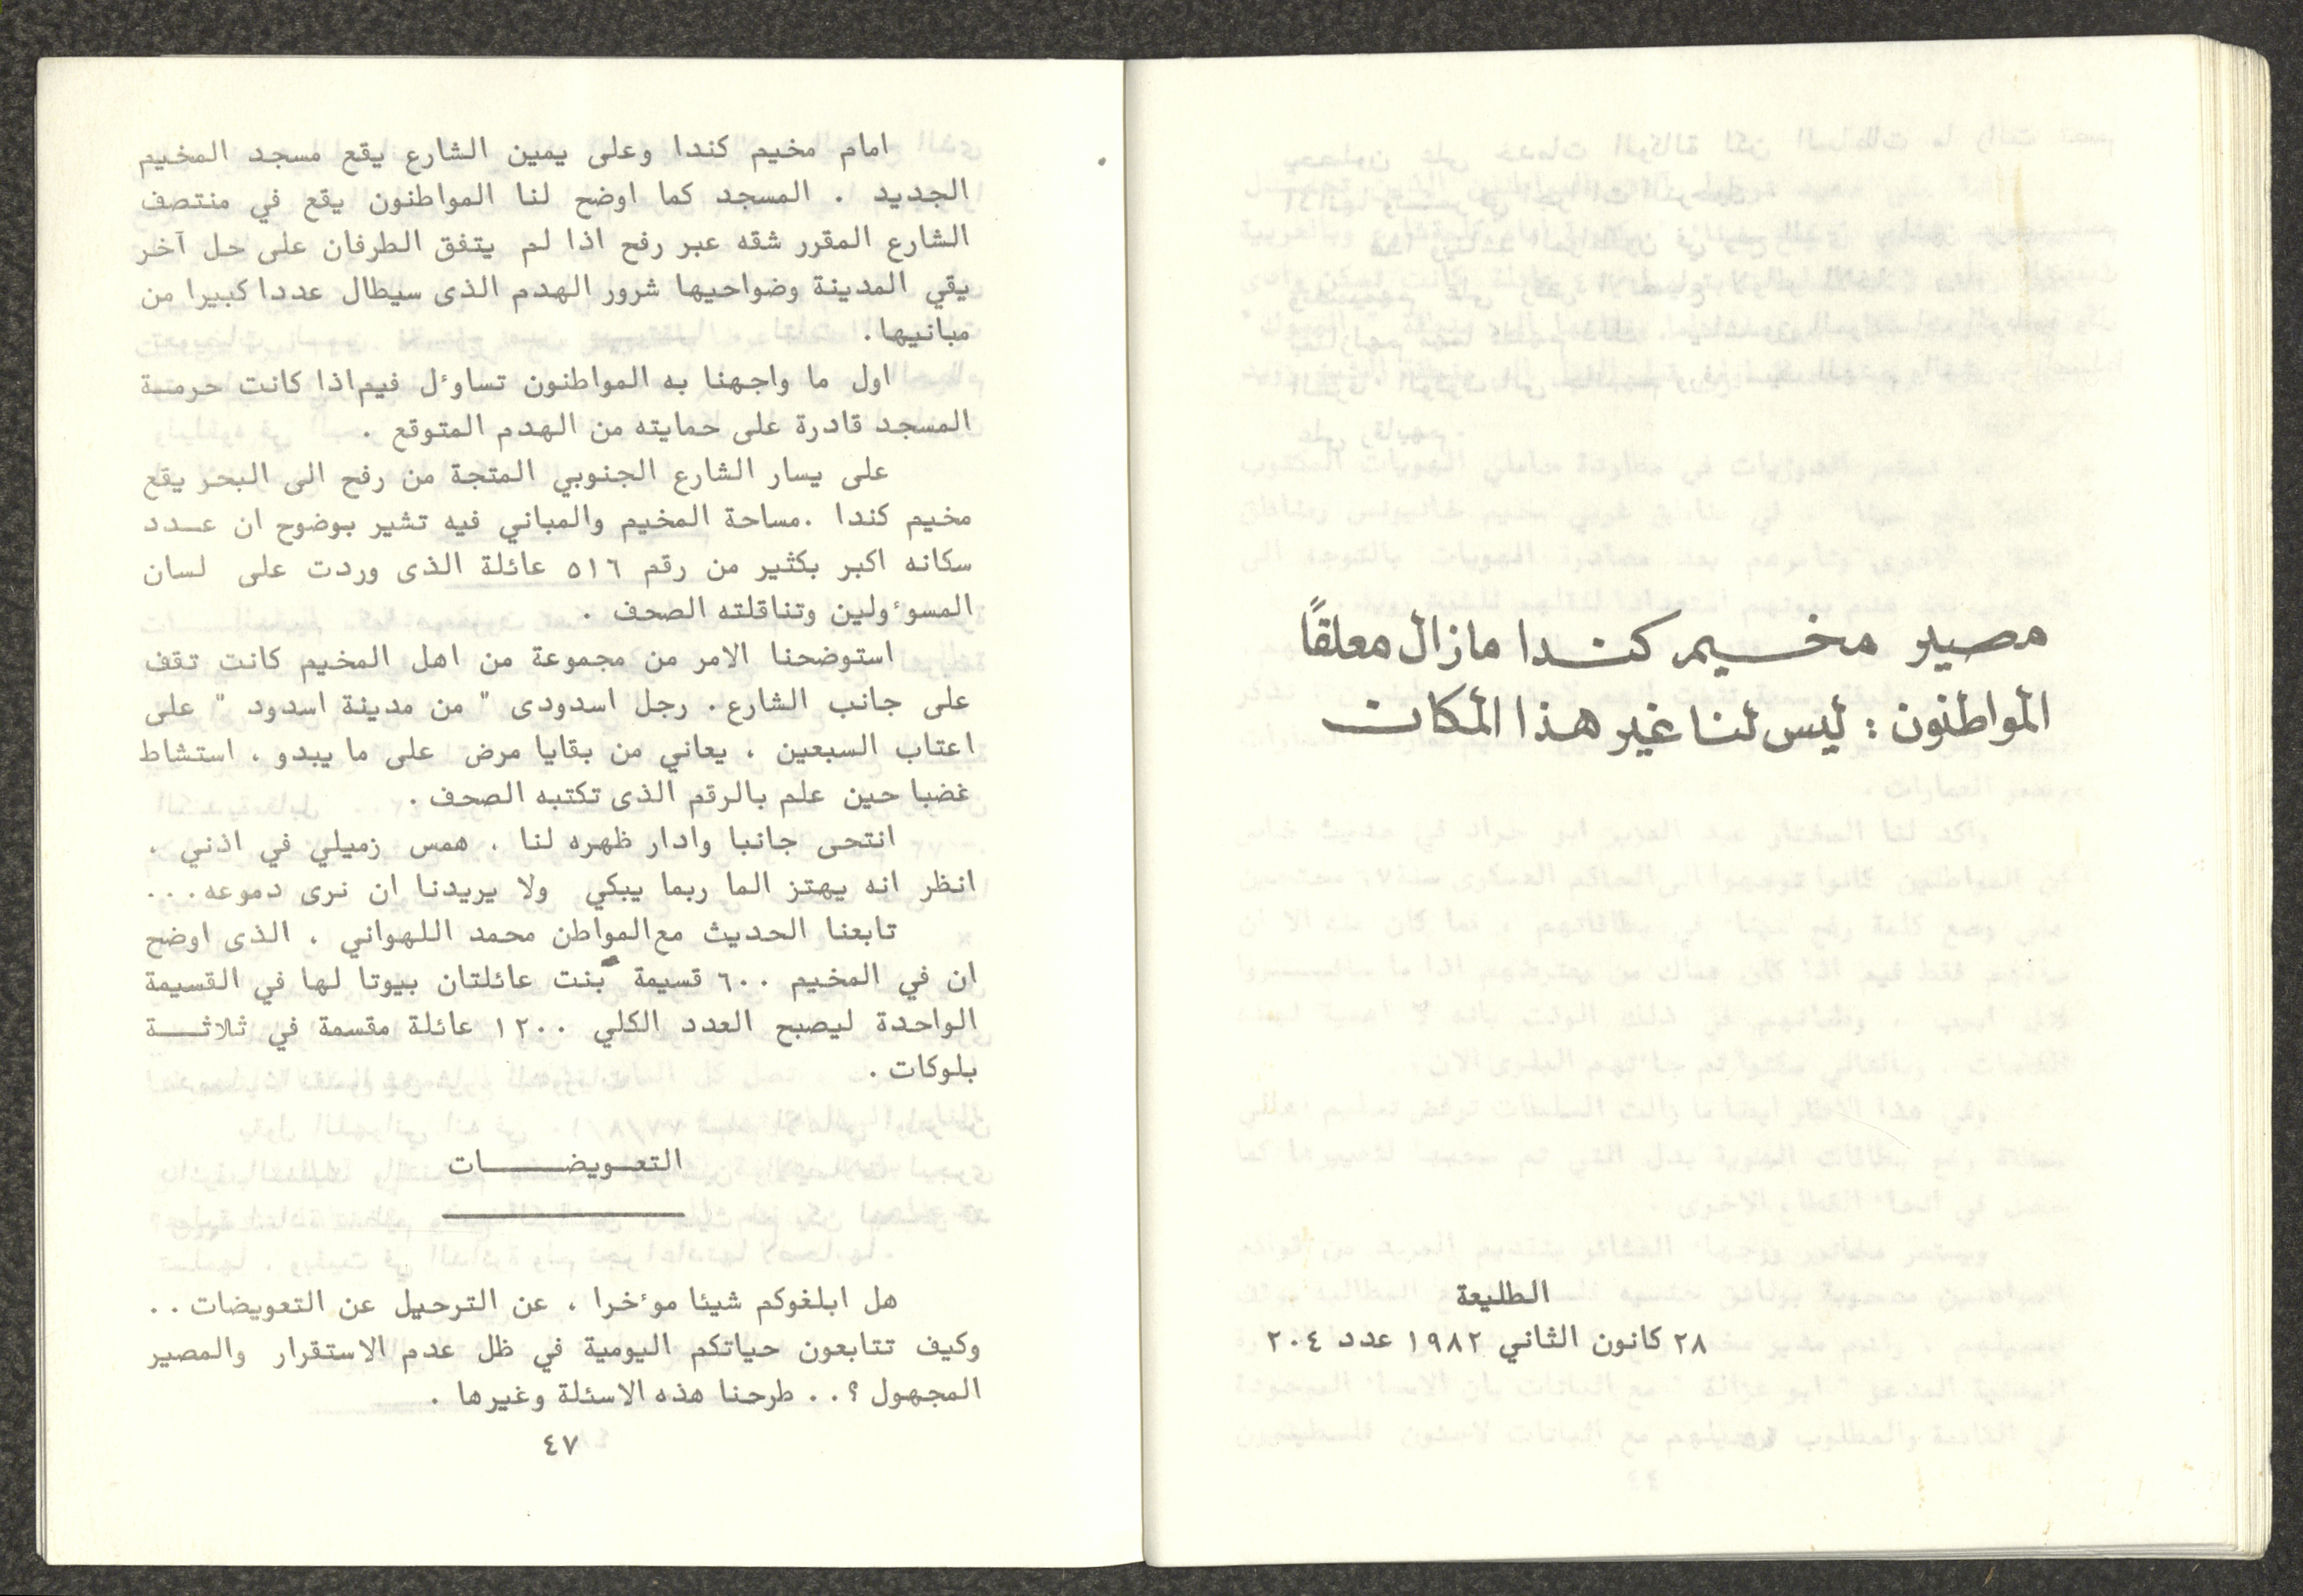 مصير مخيم كندا مازال معلقاً
المواطنون : ليس لنا غير هذا المكان
الطليعة
٢٨ كانون الثاني ١٩٨٢ عدد ٢٠٤
امام مخيم كندا وعلى يمين الشارع يقع مسجد المخيم
الجديد . المسجد كما اوضح لنا المواطنون يقع في منتصف
الشارع المقرر شقه عبر رفح اذا لم يتفق الطرفان على حل آخر
يقي المدينة وضواحيها شرور الهدم الذى سيطال عددا كبيرا من
مبانيها .
اول ما واجهنا به المواطنون تساوٴل فيم اذا كانت حرمة
المسجد قادرة على حمايته من الهدم المتوقع .
على يسار الشارع الجنوبي المتجة من رفح الى البحر يقع
مخيم كندا . مساحة المخيم والمباني فيه تشير بوضوح ان عدد
سكانه اكبر بكثير من رقم ٥١٦ عائلة الذى وردت على لسان
المسوٴولين وتناقلته الصحف .
استوضحنا الامر من مجموعة من اهل المخيم كانت تقف
على جانب الشارع . رجل اسدودى " من مدينة اسدود " على
اعتاب السبعين ، يعاني من بقايا مرض على ما يبدو ، استشاط
غضبا حين علم بالرقم الذى تكتبه الصحف .
انتحى جانبا وادار ظهره لنا ، همس زميلي في اذني ،
انظر انه يهتز الما ربما يبكي ولا يريدنا ان نرى دموعه ...
تابعنا الحديث مع المواطن محمد اللهواني ، الذى اوضح
ان في المخيم ٦٠٠ قسيمة بنت عائلتان بيوتا لها في القسيمة
الواحدة ليصبح العدد الكلي ١٢٠٠ عائلة مقسمة في ثلاثة
بلوكات .
التعويضات
هل ابلغوكم شيئا موٴخرا ، عن الترحيل عن التعويضات ..
وكيف تتابعون حياتكم اليومية في ظل عدم الاستقرار والمصير
المجهول ؟ .. طرحنا هذه الاسئلة وغيرها .
٤٧